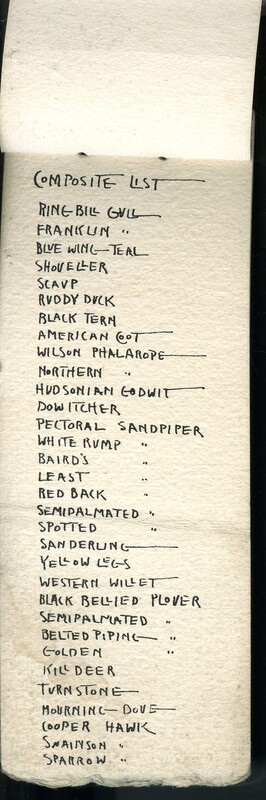 COMPOSITE LIST
RING-BILL GULL
FRANKLIN "
BLUE WING-TEAL
SHOVELLER
SCAUP
RUDDY DUCK
BLACK TERN
AMERICAN COOT
WILSON PHALAROPE
NORTHERN "
HUDSONIAN GODWIT
DOWITCHER
PECTORAL SANDPIPER
WHITE RUMP "
BAIRD'S "
LEAST "
RED BACK "
SEMIPALMATED "
SPOTTED "
SANDERLING
YELLOW LEGS
WESTERN WILLET
BLACK BELLIED PLOVER
SEMIPALMATED "
BELTED PIPING "
GOLDEN "
KILLDEER
TURNSTONE
MOURNING DOVE
COOPER HAWK
SWAINSON "
SPARROW "